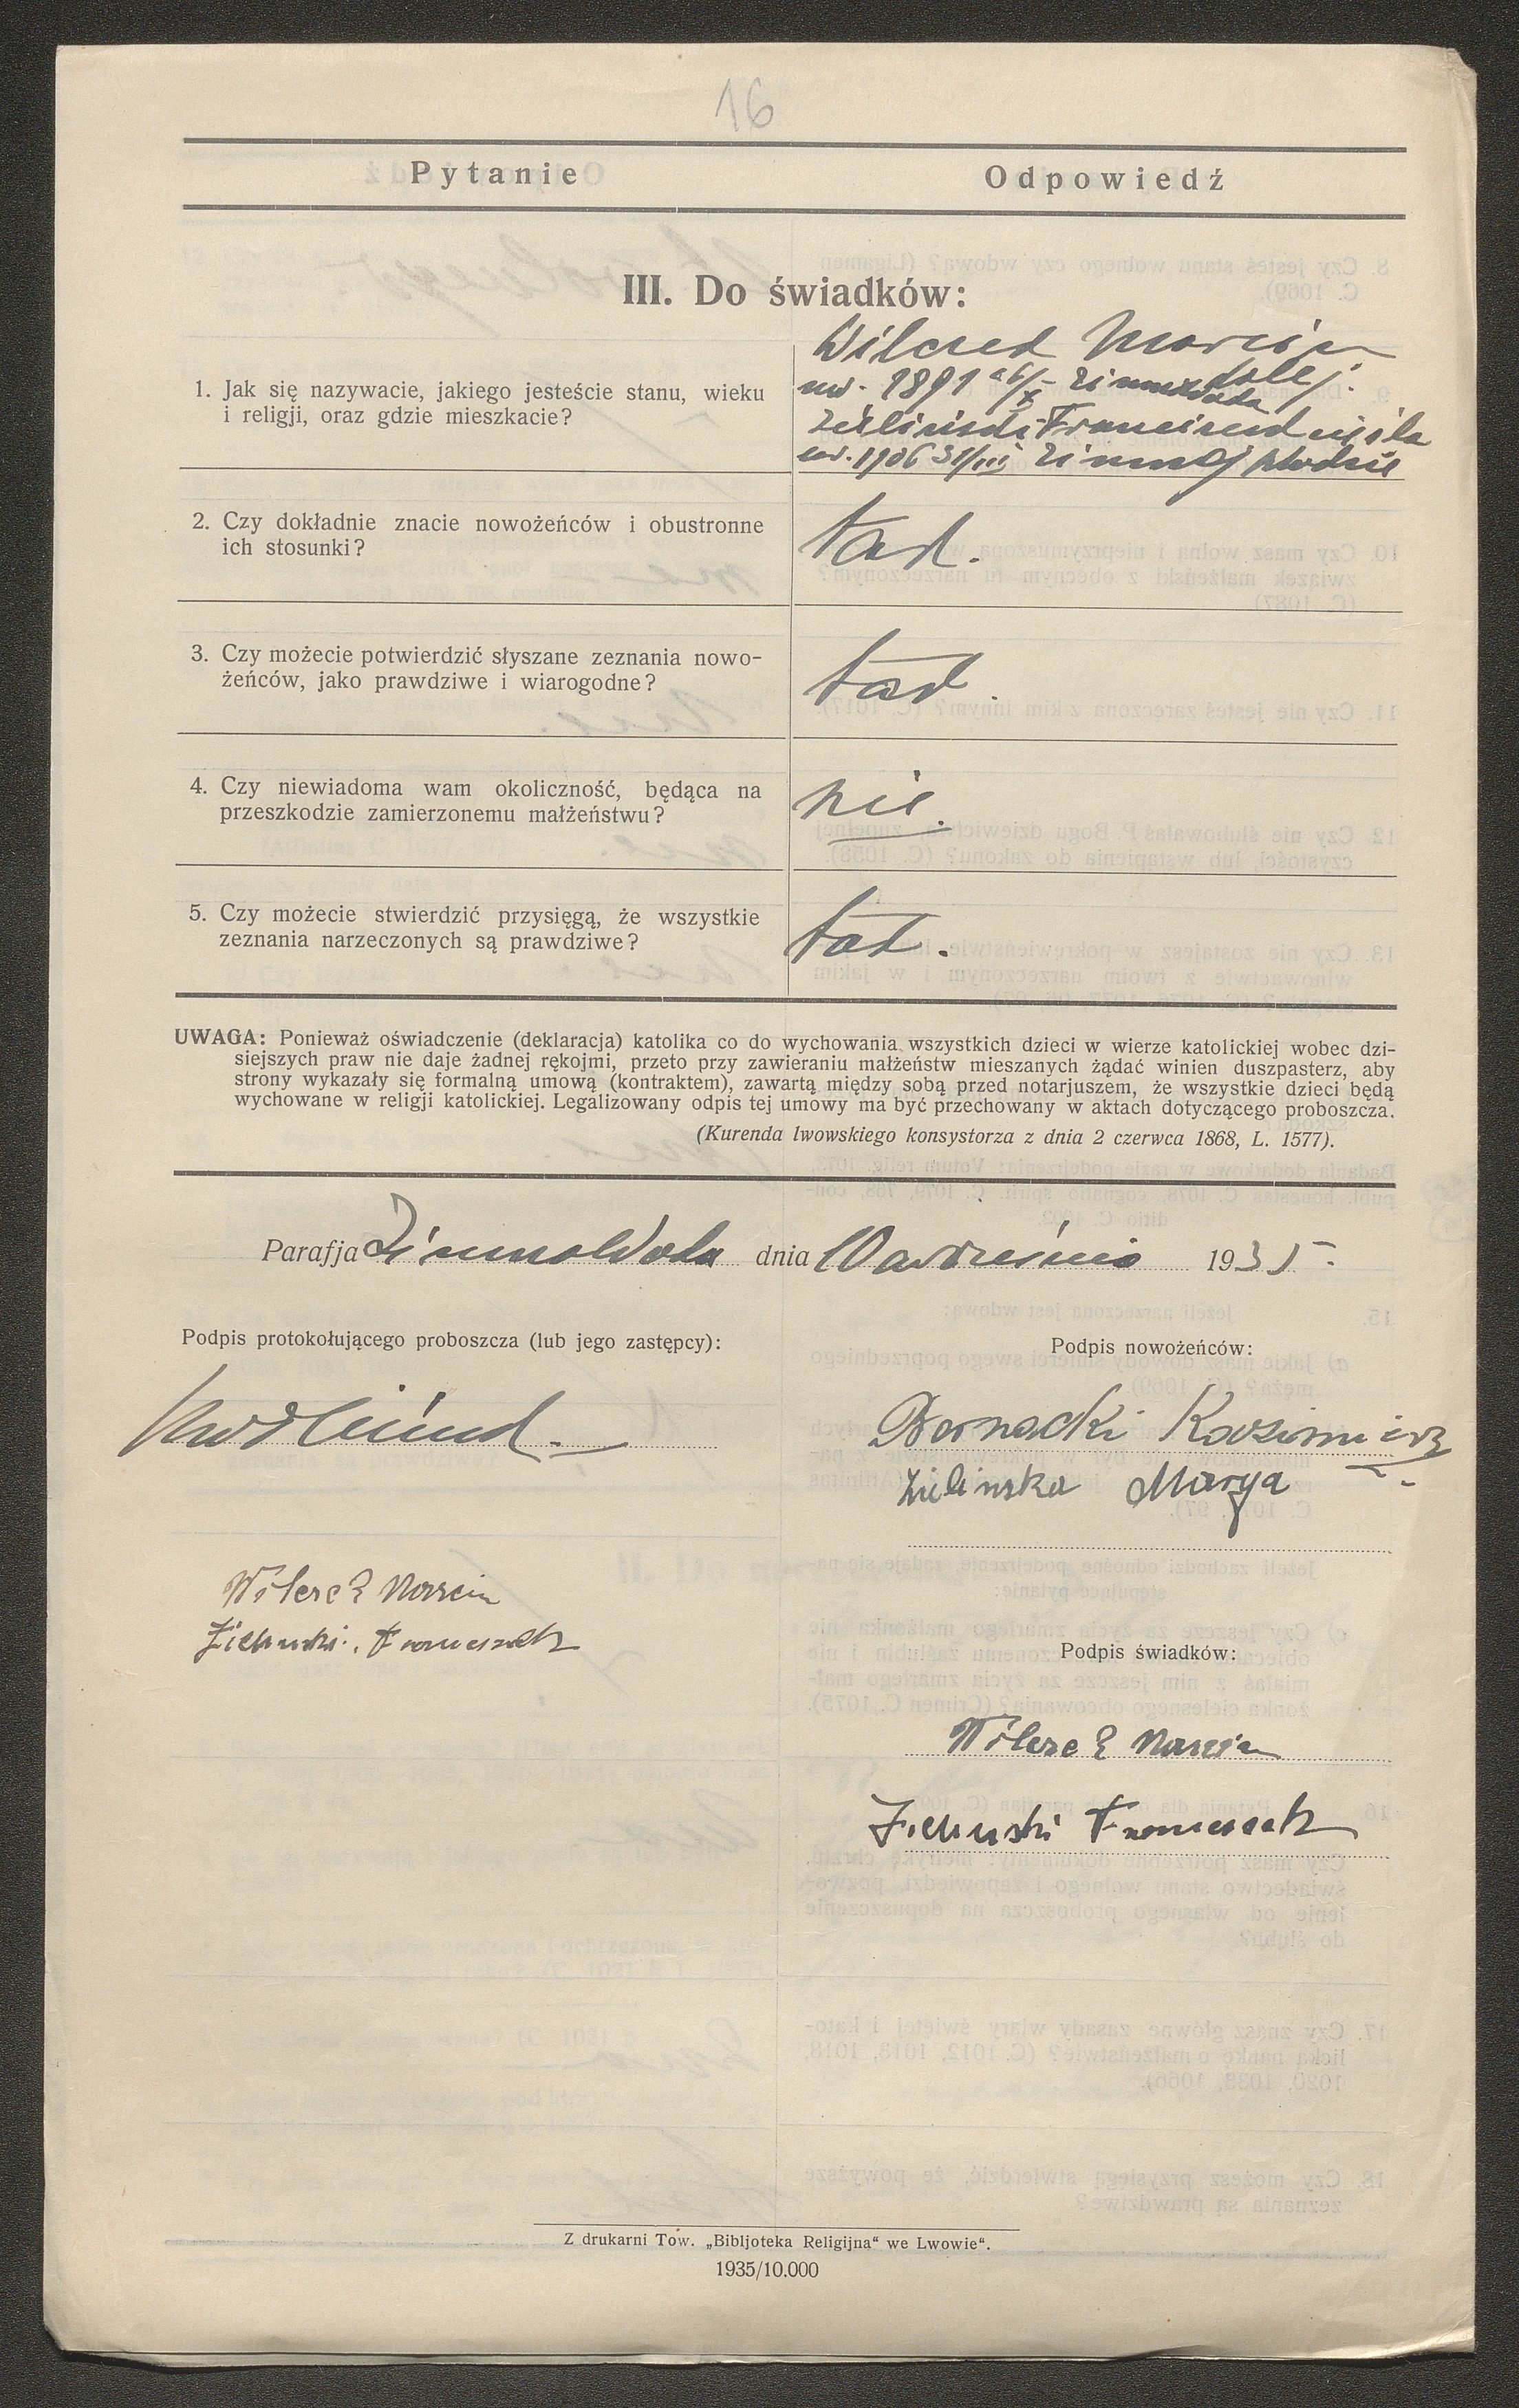 16
Pytanie Odpowiedź
III. Do świadków:
1. Jak się nazywacie, jakiego jesteście stanu, wieku
i religji, oraz gdzie mieszkacie?
Wilczek Marcin
kolej.
ur. 1891 26/X Zimnawoda
Zieliński Franciszek
ur. 1906 31/III Zimnej Wodzie
2. Czy dokładnie znacie nowożeńców i obustronne
ich stosunki?
tak.
3. Czy możecie potwierdzić słyszane zeznania nowo-
żeńców, jako prawdziwe i wiarogodne?
tak.
4. Czy niewiadoma wam okoliczność, będąca na
przeszkodzie zamierzonemu małżeństwu?
nie.
5. Czy możecie stwierdzić przysięgą, że wszystkie
zeznania narzeczonych są prawdziwe?
tak.
UWAGA: Ponieważ oświadczenie (deklaracja) katolika co do wychowania wszystkich dzieci w wierze katolickiej wobec dzi-
siejszych praw nie daje żadnej rękojmi, przeto przy zawieraniu małżeństw mieszanych żądać winien duszpasterz, aby
strony wykazały się formalną umową (kontraktem), zawartą między sobą przed notarjuszem, że wszystkie dzieci będą
wychowane w religji katolickiej. Legalizowany odpis tej umowy ma być przechowany w aktach dotyczącego proboszcza.
(Kurenda lwowskiego konsystorza z dnia 2 czerwca 1868, L. 1577).
Parafja Zimnawoda dnia 10 września 1935.
Podpis protokołującego proboszcza (lub jego zastępcy):
Podpis nowożeńców:
Bernacki Kazimierz
Zielinska Marya
Wilczek Marcin
Zieliński Franciszek
Podpis świadków:
Wilczek Marcin
Zieliński Franciszek
Z drukarni Tow. „Bibljoteka Religijna“ we Lwowie“.
1935/10.000